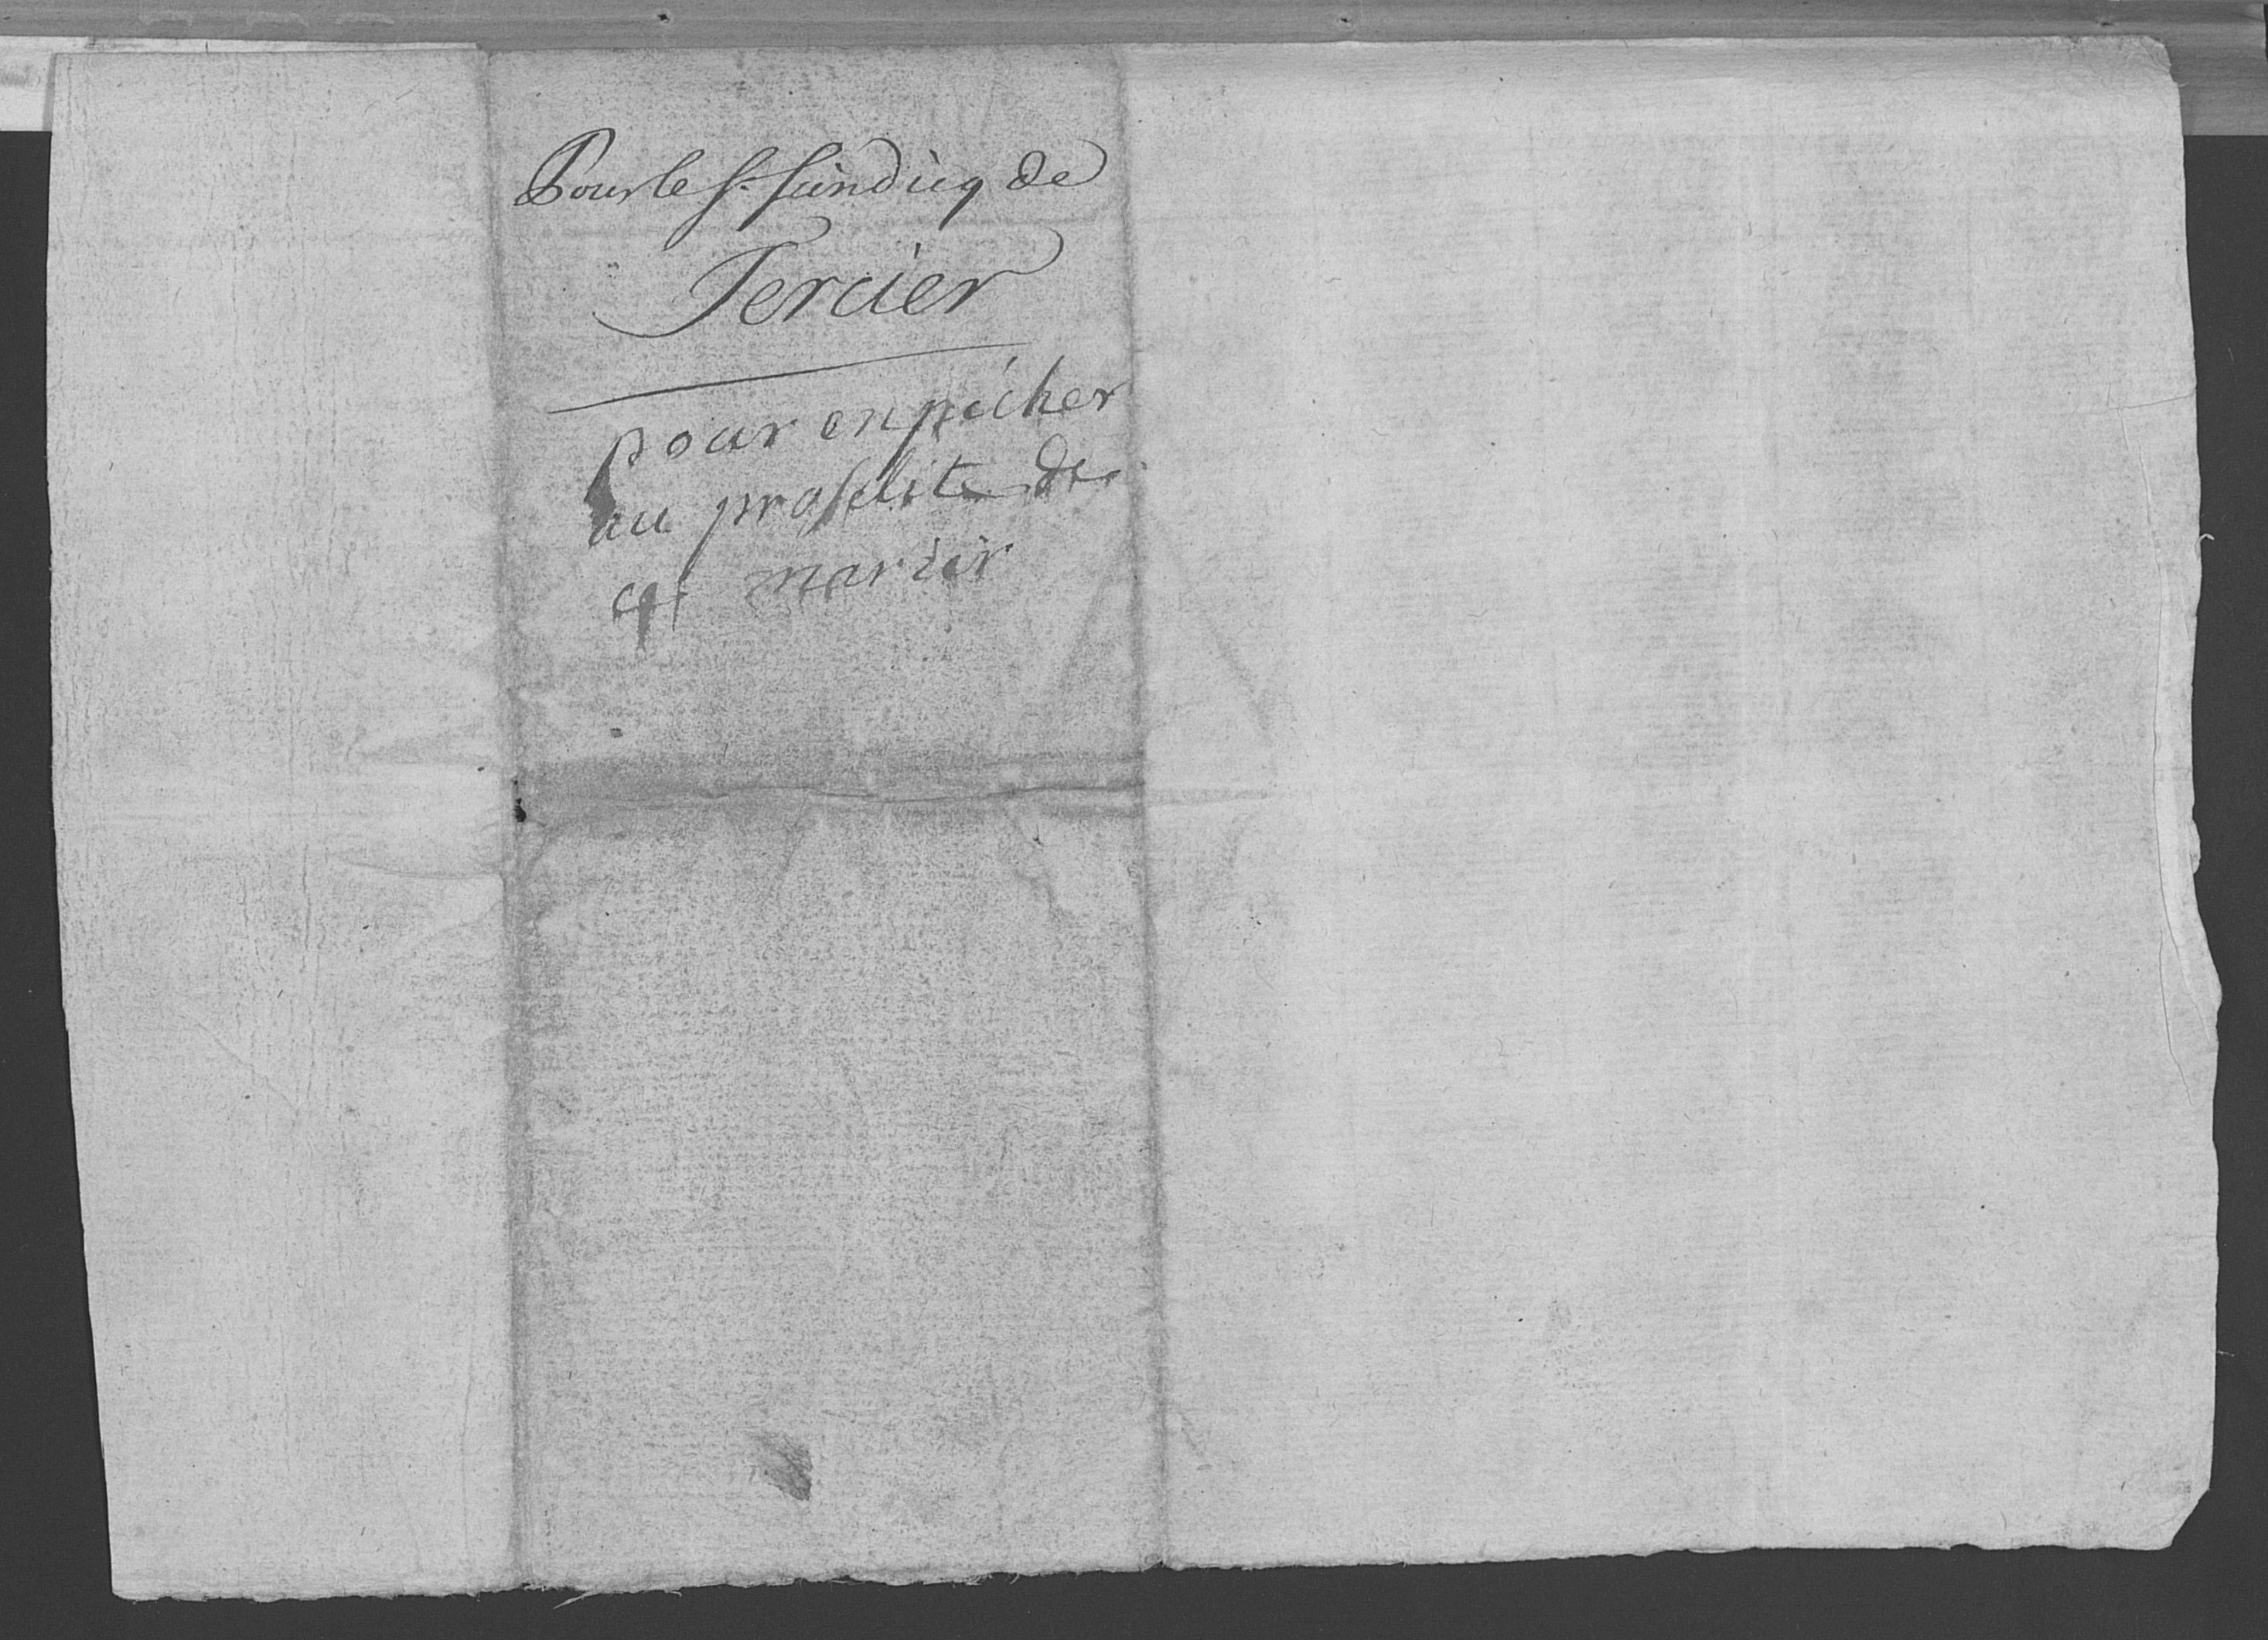 Pour le Sr. Sündicq de
Tercier
pour enpècher
au proselite de
se marier